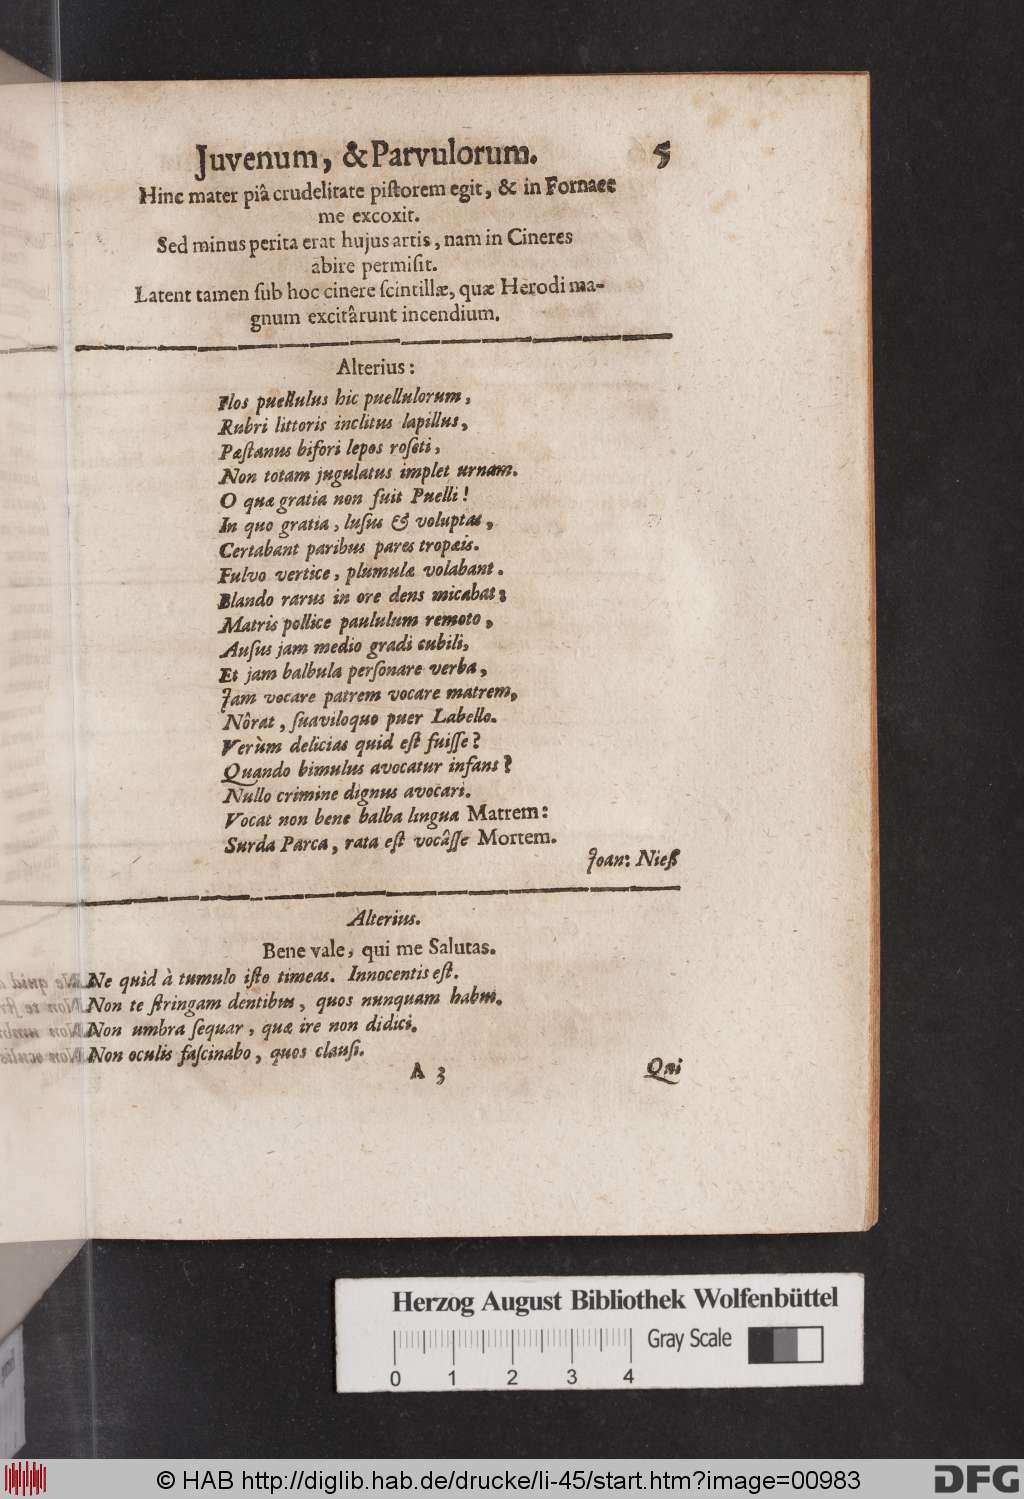 Juvenum, & Parvulorum. 5
Hinc mater piâ crudelitate piſtorem egit, & in Fornace
me excoxit.
Sed minus perita erat hujus artis, nam in Cineres
abire permiſit.
Latent tamen ſub hoc cinere ſcintillæ, quæ Herodi ma-
gnum excitârunt incendium.
Alterius:
Flos puellulus hic puellulorum,
Rubri littoris inclitus lapillus,
Pæſtanus bifori lepos roſeti,
Non totam jugulatus implet urnam.
O quæ gratia non fuit Puelli!
In quo gratia, luſus & voluptas,
Certabant paribus pares tropæis.
Fulvo vertice, plumulæ volabant.
Blando rarus in ore dens micabat;
Matris pollice paululum remoto,
Auſus jam medio gradi cubili,
Et jam balbula perſonare verba,
Jam vocare patrem vocare matrem,
Nôrat, ſuaviloquo puer Labello.
Verùm delicias quid eſt fuiſſe?
Quando bimulus avocatur infans?
Nullo crimine dignus avocari.
Vocat non bene balba lingua Matrem:
Surda Parca, rata eſt vocâſſe Mortem.
Joan: Nieß
Alterius.
Bene vale, qui me Salutas.
Ne quid à tumulo iſto timeas. Innocentis eſt.
Non te ſtringam dentibus, quos nunquam habui.
Non umbra ſequar, quæ ire non didici.
Non oculis faſcinabo, quos clauſi.
A 3 Qui
Herzog August Bibliothek Wolfenbüttel
Gray Scale
0 1 2 3 4
© HAB http://diglib.hab.de/drucke/li-45/start.htm?image=00983
DFG